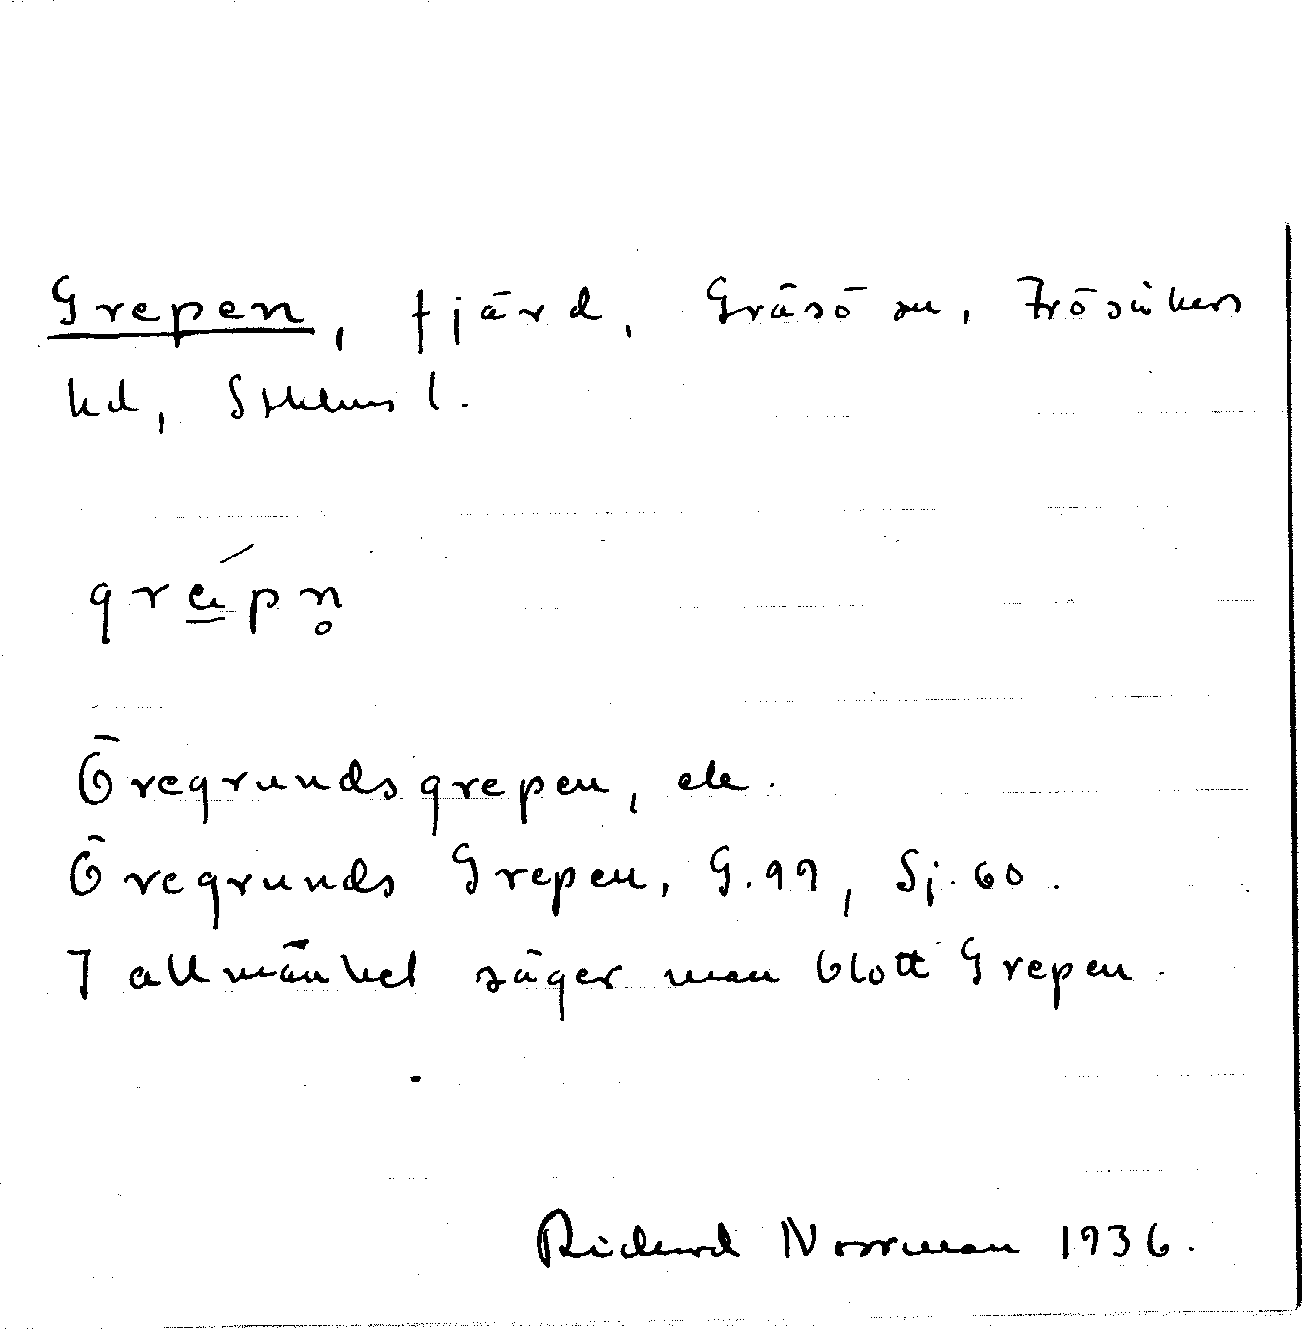 Grepen, fjärd, Gräsö sn, Frösåkers
hd, Sthlms l.
grepn̥
Öregrundsgrepen, ek.
Öregrunds Grepen, G.99, Sj.60.
I allmänhet säger man blott Grepen.
Richard Norrman 1936.